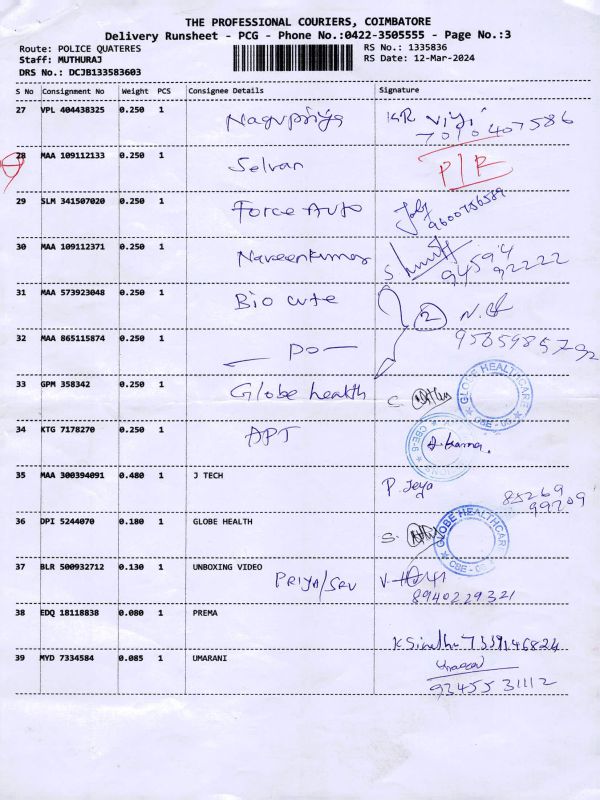 THE PROFESSIONAL COURIERS, COIMBATORE
Delivery Runsheet - PCG - Phone No.:0422-3505555 - Page No.:3
Route: POLICE QUATERES
RS No.: 1335836
Staff: MUTHURAJ
RS Date: 12-Mar-2024
DRS No.: DCJB133583603
S No Consignment No Weight PCS Consignee Details Signature
27 VPL 404438325 0.250 1 Nagupriya KR Viji
7010407586
28 MAA 109112133 0.250 1 Selvan P/R
29 SLM 341507020 0.250 1 Force Auto
9600756589
30 MAA 109112371 0.250 1 Naveenkumar
94594
92222
31 MAA 573923048 0.250 1 Bio cute 2
32 MAA 865115874 0.250 1 — DO —
33 GPM 358342 0.250 1 Globe health C.
GLOBE HEALTHCARE
34 KTG 7178270 0.250 1 APT
35 MAA 300394091 0.480 1 J TECH P. Jeya 85269
99709
36 DPI 5244070 0.180 1 GLOBE HEALTH S.
GLOBE HEALTHCARE
37 BLR 500932712 0.130 1 UNBOXING VIDEO
PRIYA/SRV
8940229321
38 EDQ 18118838 0.080 1 PREMA
39 MYD 7334584 0.085 1 UMARANI
93455 31112